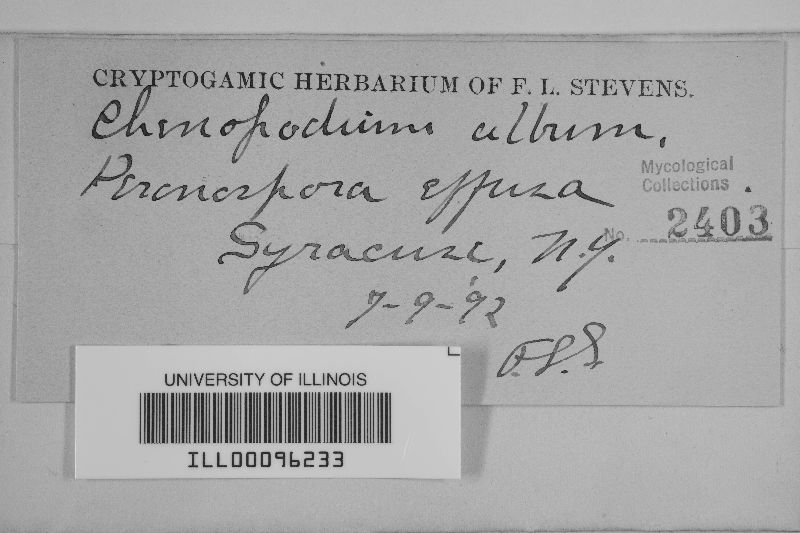 CRYPTOGAMIC HERBARIUM OF F. L. STEVENS.
Chenopodium album,
Peronospora effusa
Mycological
Collections
No. 2403
Syracuse, N.Y.
7-9-'92
F.L.S
UNIVERSITY OF ILLINOIS
ILL00096233